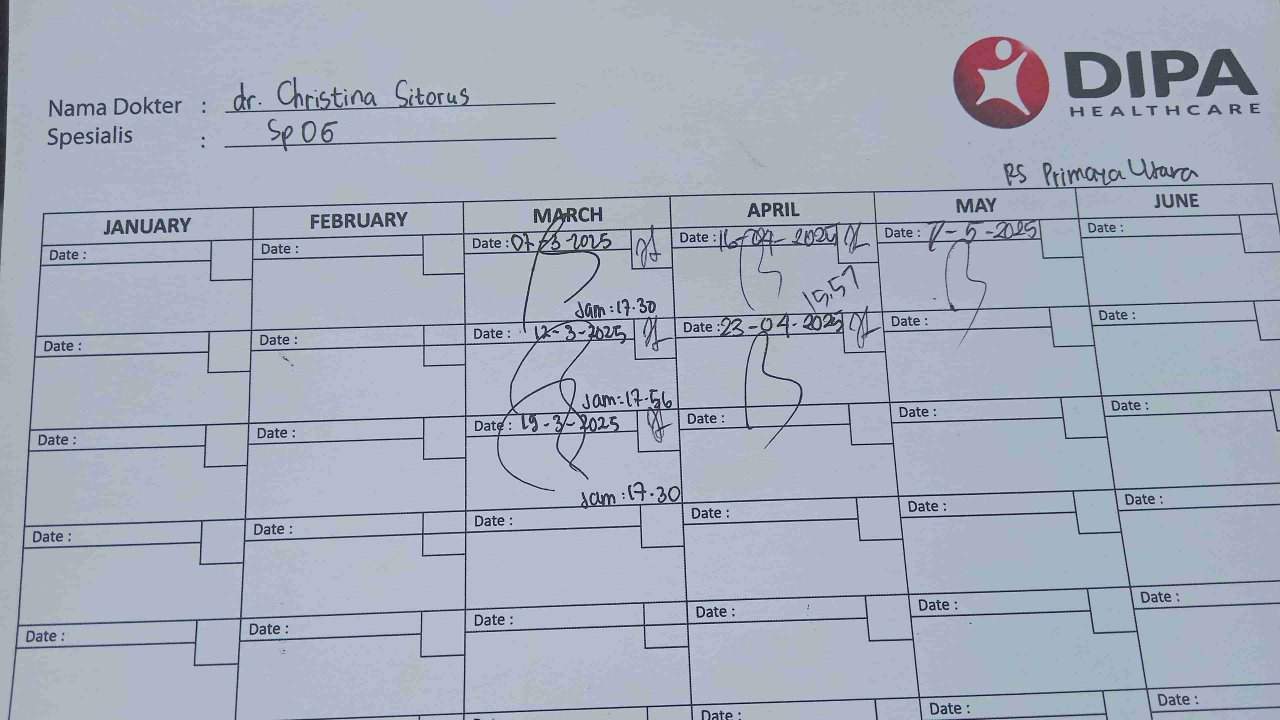 DIPA
HEALTHCARE
Nama Dokter : dr. Christina Sitorus
Spesialis : Sp OG
RS Primaya Utara
JANUARY FEBRUARY MARCH APRIL MAY JUNE
Date : Date : Date : 07-3-2025 Date : 16-04-2025 Date : 7-5-2025 Date :
Jam : 17.30 15.57
Date : Date : Date : 12-3-2025 Date : 23-04-2025 Date : Date :
Jam : 17.56
Date : Date : Date : 19-3-2025 Date : Date : Date :
Jam : 17.30
Date : Date : Date : Date : Date : Date :
Date : Date : Date : Date : Date : Date :
Date : Date : Date : Date :